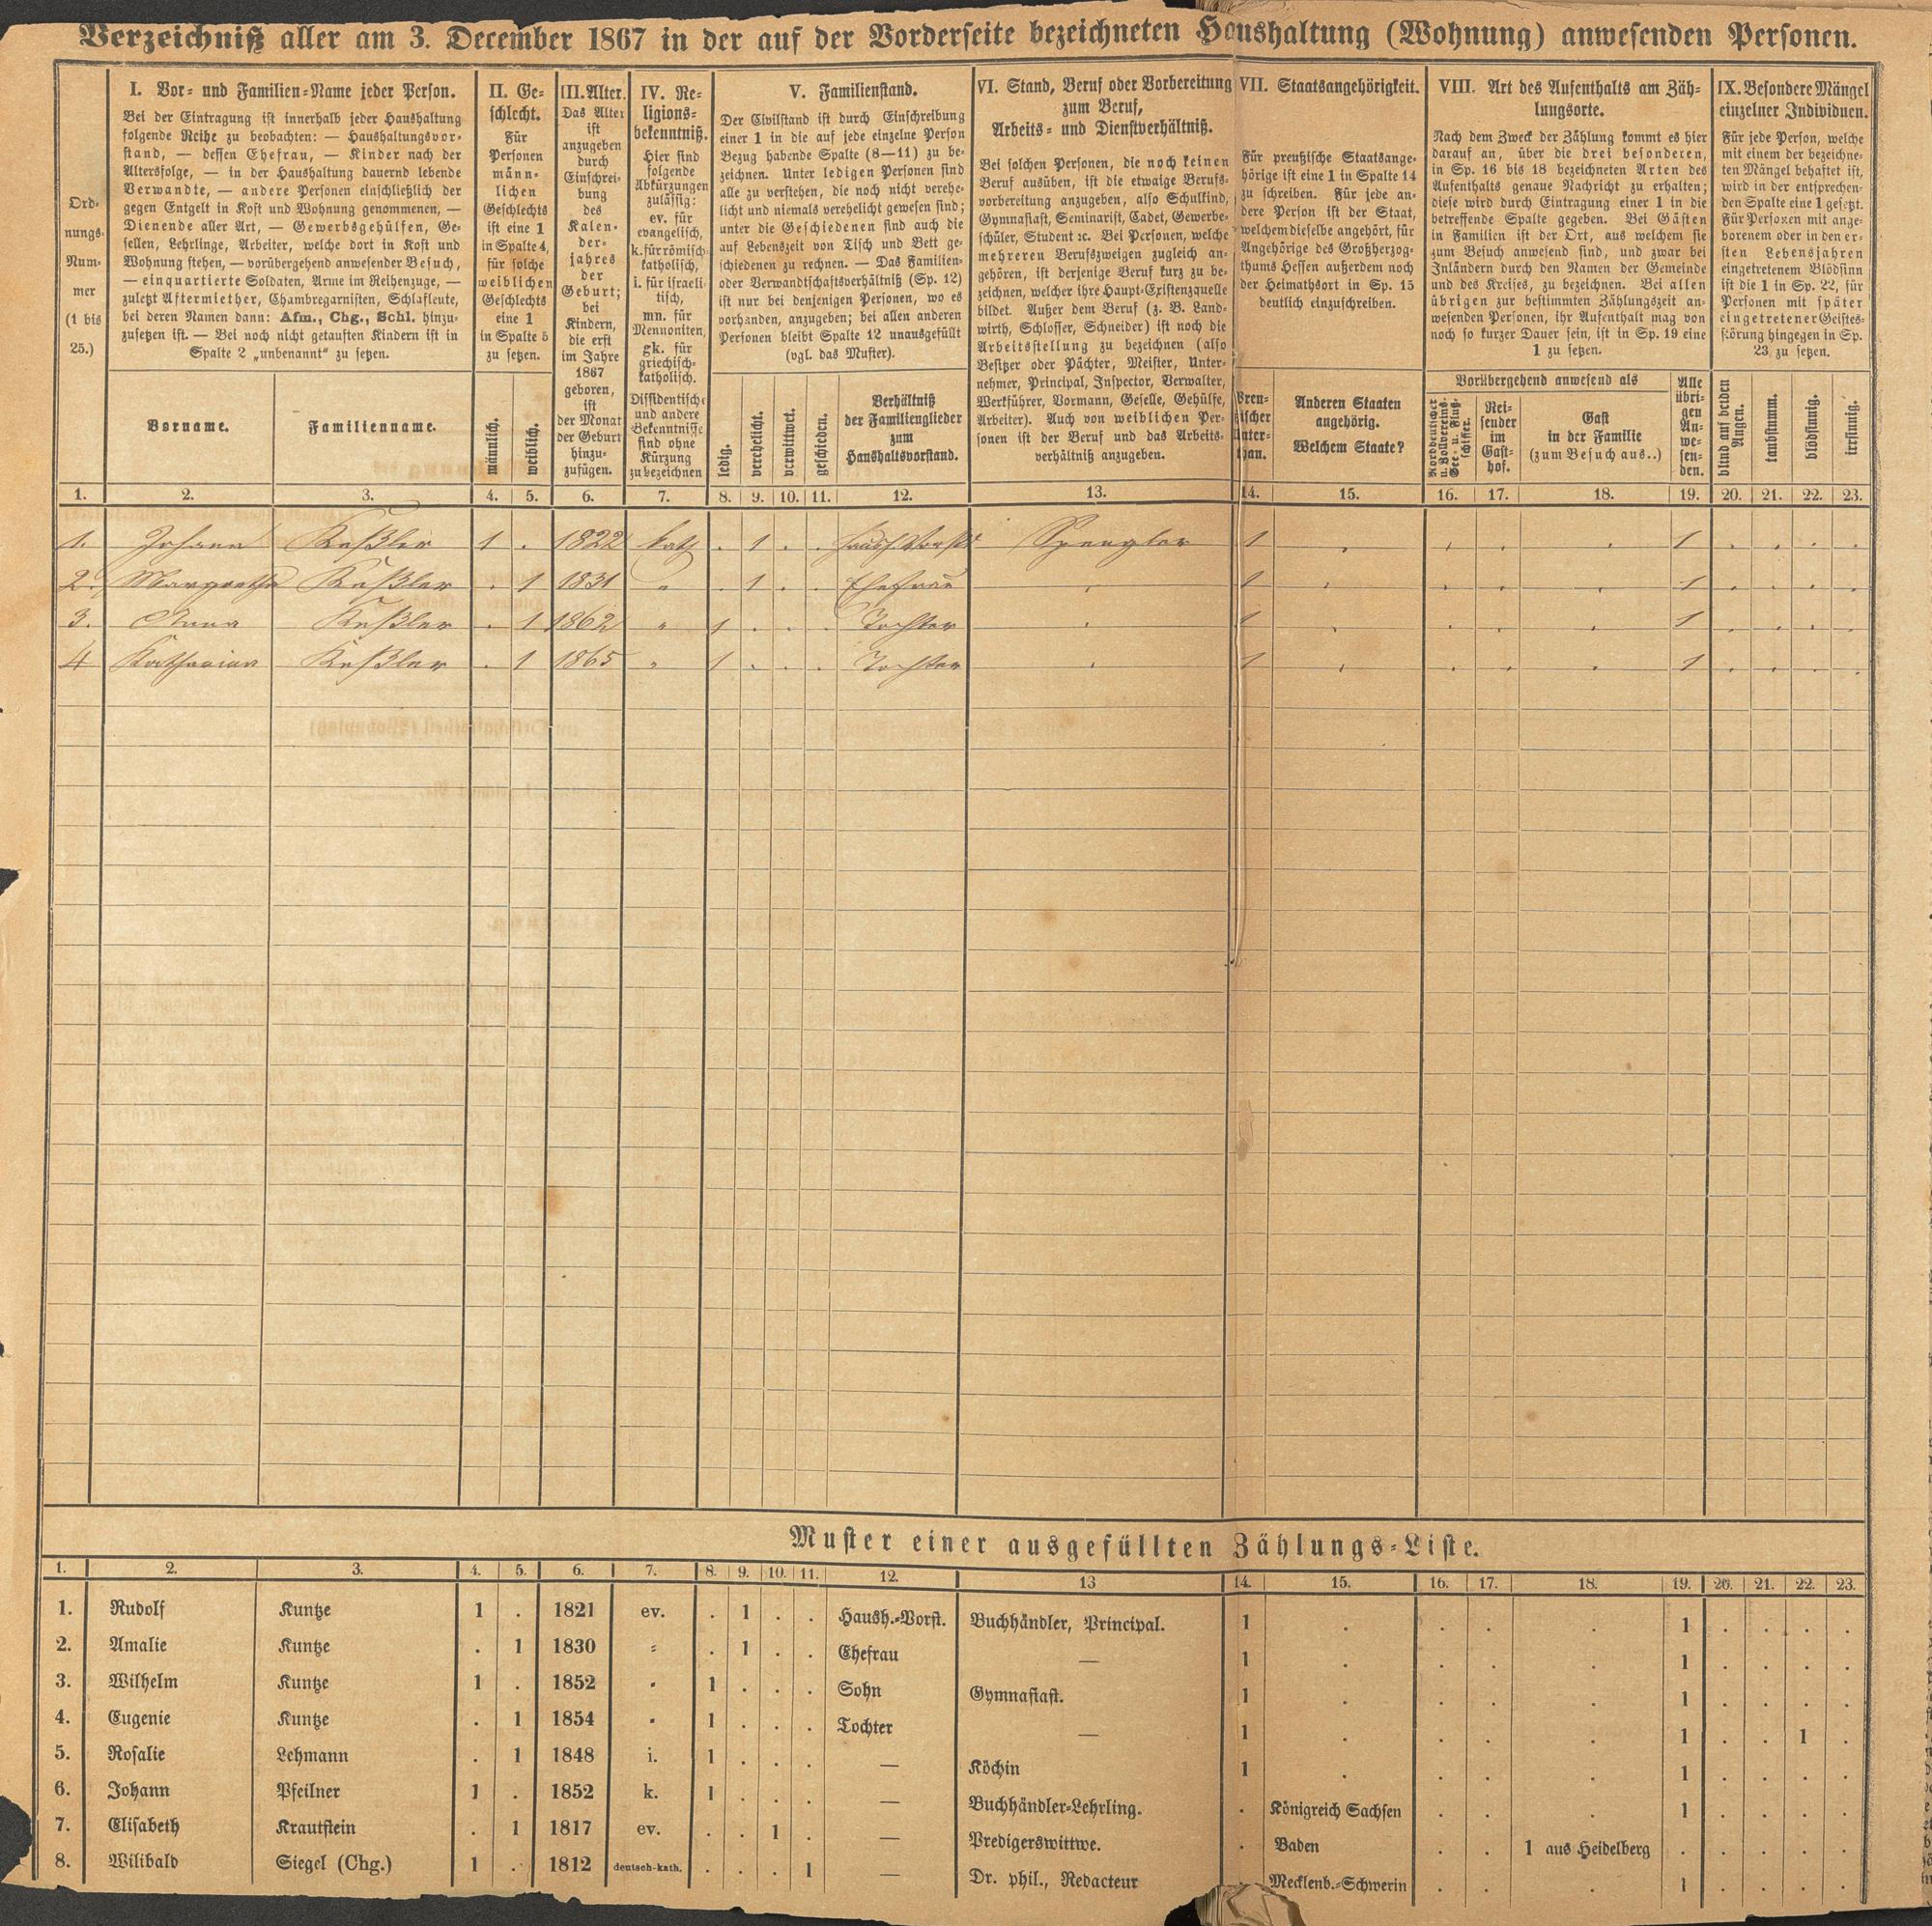 Verzeichniß aller am 3. December 1867 in der auf der Vorderseite bezeichneten Haushaltung (Wohnung) anwesenden Personen.
Ord-
nungs-
Num-
mer
(1 bis
25.)
I. Vor- und Familien-Name jeder Person.
Bei der Eintragung ist innerhalb jeder Haushaltung
folgende Reihe zu beobachten: — Haushaltungsvor-
stand, — dessen Ehefrau, — Kinder nach der
Altersfolge, — in der Haushaltung dauernd lebende
Verwandte, — andere Personen einschließlich der
gegen Entgelt in Kost und Wohnung genommenen, —
Dienende aller Art, — Gewerbsgehülfen, Ge-
sellen, Lehrlinge, Arbeiter, welche dort in Kost und
Wohnung stehen, — vorübergehend anwesender Besuch,
— einquartierte Soldaten, Arme im Reihenzuge, —
zuletzt Aftermiether, Chambregarnisten, Schlafleute,
bei deren Namen dann: Afm., Chg., Schl. hinzu-
zusetzen ist. — Bei noch nicht getauften Kindern ist in
Spalte 2 „unbenannt“ zu setzen.
Vorname.
Familienname.
II. Ge-
schlecht.
Für
Personen
männ-
lichen
Geschlechts
ist eine 1
in Spalte 4,
für solche
weiblichen
Geschlechts
eine 1
in Spalte 5
zu setzen.
männlich.
weiblich.
III. Alter.
Das Alter
ist
anzugeben
durch
Einschrei-
bung
des
Kalen-
der-
jahres
der
Geburt;
bei
Kindern,
die erst
im Jahre
1867
geboren,
ist
der Monat
der Geburt
hinzu-
zufügen.
IV. Re-
ligions-
bekenntniß.
Hier sind
folgende
Abkürzungen
zulässig:
ev. für
evangelisch,
k. für römisch-
katholisch,
i. für israeli-
tisch,
mn. für
Mennoniten,
gk. für
griechisch-
katholisch.
Dissidentische
und andere
Bekenntnisse
sind ohne
Kürzung
zu bezeichnen
V. Familienstand.
Der Civilstand ist durch Einschreibung
einer 1 in die auf jede einzelne Person
Bezug habende Spalte (8—11) zu be-
zeichnen. Unter ledigen Personen sind
alle zu verstehen, die noch nicht verehe-
licht und niemals verehelicht gewesen sind;
unter die Geschiedenen sind auch die
auf Lebenszeit von Tisch und Bett ge-
schiedenen zu rechnen. — Das Familien-
oder Verwandtschaftsverhältniß (Sp. 12)
ist nur bei denjenigen Personen, wo es
vorhanden, anzugeben; bei allen anderen
Personen bleibt Spalte 12 unausgefüllt
(vgl. das Muster).
ledig.
verehelicht.
verwittwet.
geschieden.
Verhältniß
der Familienglieder
zum
Haushaltsvorstand.
VI. Stand, Beruf oder Vorbereitung
zum Beruf,
Arbeits- und Dienstverhältniß.
Bei solchen Personen, die noch keinen
Beruf ausüben, ist die etwaige Berufs-
vorbereitung anzugeben, also Schulkind,
Gymnasiast, Seminarist, Cadet, Gewerbe-
schüler, Student ꝛc. Bei Personen, welche
mehreren Berufszweigen zugleich an-
gehören, ist derjenige Beruf kurz zu be-
zeichnen, welcher ihre Haupt-Existenzquelle
bildet. Außer dem Beruf (z. B. Land-
wirth, Schlosser, Schneider) ist noch die
Arbeitsstellung zu bezeichnen (also
Besitzer oder Pächter, Meister, Unter-
nehmer, Principal, Inspector, Verwalter,
Werkführer, Vormann, Geselle, Gehülfe,
Arbeiter). Auch von weiblichen Per-
sonen ist der Beruf und das Arbeits-
verhältniß anzugeben.
VII. Staatsangehörigkeit.
Für preußische Staatsange-
hörige ist eine 1 in Spalte 14
zu schreiben. Für jede an-
dere Person ist der Staat,
welchem dieselbe angehört, für
Angehörige des Großherzog-
thums Hessen außerdem noch
der Heimathsort in Sp. 15
deutlich einzuschreiben.
Preu-
ßischer
Unter-
than.
Anderen Staaten
angehörig.
Welchem Staate?
VIII. Art des Aufenthalts am Zäh-
lungsorte.
Nach dem Zweck der Zählung kommt es hier
darauf an, über die drei besonderen,
in Sp. 16 bis 18 bezeichneten Arten des
Aufenthalts genaue Nachricht zu erhalten;
diese wird durch Eintragung einer 1 in die
betreffende Spalte gegeben. Bei Gästen
in Familien ist der Ort, aus welchem sie
zum Besuch anwesend sind, und zwar bei
Inländern durch den Namen der Gemeinde
und des Kreises, zu bezeichnen. Bei allen
übrigen zur bestimmten Zählungszeit an-
wesenden Personen, ihr Aufenthalt mag von
noch so kurzer Dauer sein, ist in Sp. 19 eine
1 zu setzen.
Vorübergehend anwesend als
Norddeutscher
u. Zollvereins-
See- u. Fluß-
schiffer.
Rei-
sender
im
Gast-
hof.
Gast
in der Familie
(zum Besuch aus..)
Alle
übri-
gen
An-
we-
sen-
den.
IX. Besondere Mängel
einzelner Individuen.
Für jede Person, welche
mit einem der bezeichne-
ten Mängel behaftet ist,
wird in der entsprechen-
den Spalte eine 1 gesetzt.
Für Personen mit ange-
borenem oder in den er-
sten Lebensjahren
eingetretenem Blödsinn
ist die 1 in Sp. 22, für
Personen mit später
eingetretener Geistes-
störung hingegen in Sp.
23 zu setzen.
blind auf beiden
Augen.
taubstumm.
blödsinnig.
irrsinnig.
1. 2. 3. 4. 5. 6. 7. 8. 9. 10. 11. 12. 13. 14. 15. 16. 17. 18. 19. 20. 21. 22. 23.
1. Johann Keßler 1 . 1822 kath . 1 . . Haush Vorst Spengler 1 . . . . 1 . . . .
2. Margaretha Keßler . 1 1831 " . 1 . . Ehefrau . 1 . . . . 1 . . . .
3. Anna Keßler . 1 1862 " 1 . . . Tochter . 1 . . . . 1 . . . .
4 Katharina Keßler . 1 1865 " 1 . . . Tochter . 1 . . . . 1 . . . .
Muster einer ausgefüllten Zählungs-Liste.
1. 2. 3. 4. 5. 6. 7. 8. 9. 10. 11. 12. 13 14. 15. 16. 17. 18. 19. 20. 21. 22. 23.
1. Rudolf Kuntze 1 . 1821 ev. . 1 . . Haush.-Vorst. Buchhändler, Principal. 1 . . . . 1 . . . .
2. Amalie Kuntze . 1 1830 " . 1 . . Ehefrau — 1 . . . . 1 . . . .
3. Wilhelm Kuntze 1 . 1852 " 1 . . . Sohn Gymnasiast. 1 . . . . 1 . . . .
4. Eugenie Kuntze . 1 1854 " 1 . . . Tochter — 1 . . . . 1 . . 1 .
5. Rosalie Lehmann . 1 1848 i. 1 . . . — Köchin 1 . . . . 1 . . . .
6. Johann Pfeilner 1 . 1852 k. 1 . . . — Buchhändler-Lehrling. . Königreich Sachsen . . . 1 . . . .
7. Elisabeth Krautstein . 1 1817 ev. . . 1 . — Predigerswittwe. . Baden . . 1 aus Heidelberg . . . . .
8. Wilibald Siegel (Chg.) 1 . 1812 deutsch-kath. . . . 1 — Dr. phil., Redacteur . Mecklenb.-Schwerin . . . 1 . . . .